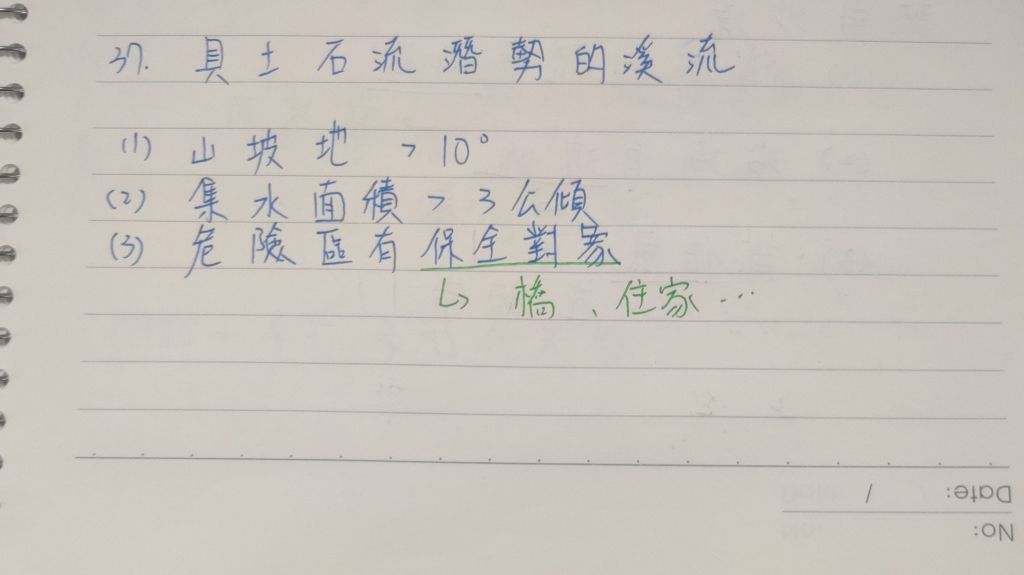 37. 具土石流潛勢的溪流
(1) 山坡地 > 10°
(2) 集水面積 > 3公傾
(3) 危險區有保全對象
↳ 橋、住家…
Date: /
No: